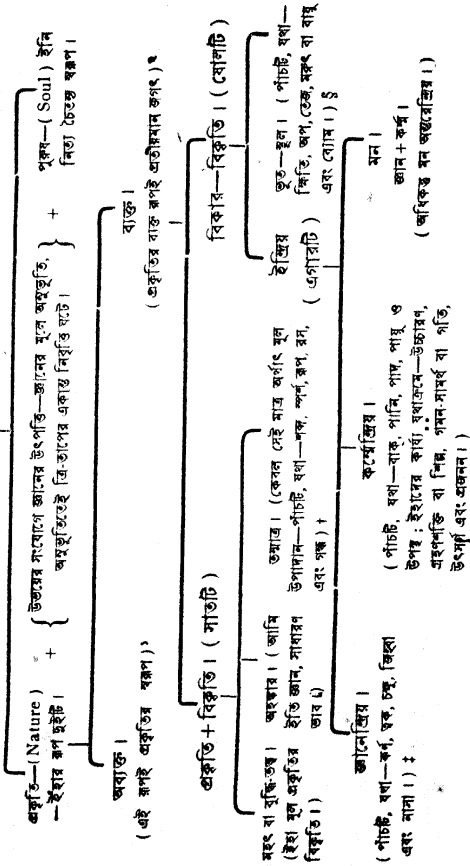 প্রকৃতি—(Nature)
—ইঁহার রূপ দুইটি।
+
উভয়ের সংযোগে জ্ঞানের উৎপত্তি—জ্ঞানের মূলে অনুভূতি,
অনুভূতিতেই ত্রি-তাপের একান্ত নিবৃত্তি ঘটে।
+
পুরুষ—(Soul) ইনি
নিত্য চৈতন্য স্বরূপ।
অব্যক্ত।
(এই রূপই প্রকৃতির স্বরূপ)¹
ব্যক্ত।
(প্রকৃতির ব্যক্ত রূপই প্রতীয়মান জগৎ)²
প্রকৃতি + বিকৃতি। (সাতটি)
বিকার—বিকৃতি। (ষোলটি)
মহৎ বা বুদ্ধি-তত্ত্ব।
(ইহা মূল প্রকৃতির
বিকৃতি।)
অহঙ্কার। (আমি
ইতি জ্ঞান, সাধারণ
ভাব।)
তন্মাত্র। (কেবল সেই মাত্র অর্থাৎ মূল
উপাদান—পাঁচটি, যথা—শব্দ, স্পর্শ, রূপ, রস,
এবং গন্ধ।) †
ইন্দ্রিয়
(এগারটি)
ভূত—স্থূল। (পাঁচটি, যথা—
ক্ষিতি, অপ্, তেজ, মরুৎ বা বায়ু
এবং ব্যোম।) §
জ্ঞানেন্দ্রিয়।
(পাঁচটি, যথা—কর্ণ, ত্বক, চক্ষু, জিহ্বা
এবং নাসা।) ‡
কর্ম্মেন্দ্রিয়।
(পাঁচটি, যথা—বাক্, পানি, পাদ, পায়ু ও
উপস্থ ; ইহাদের কার্য্য যথাক্রমে—উচ্চারণ,
গ্রহণশক্তি বা শিল্প, গমন-সামর্থ বা গতি,
উৎসর্গ এবং প্রজনন।)
মন।
জ্ঞান + কর্ম্ম।
(অধিকন্তু মন অন্তরেন্দ্রিয়।)